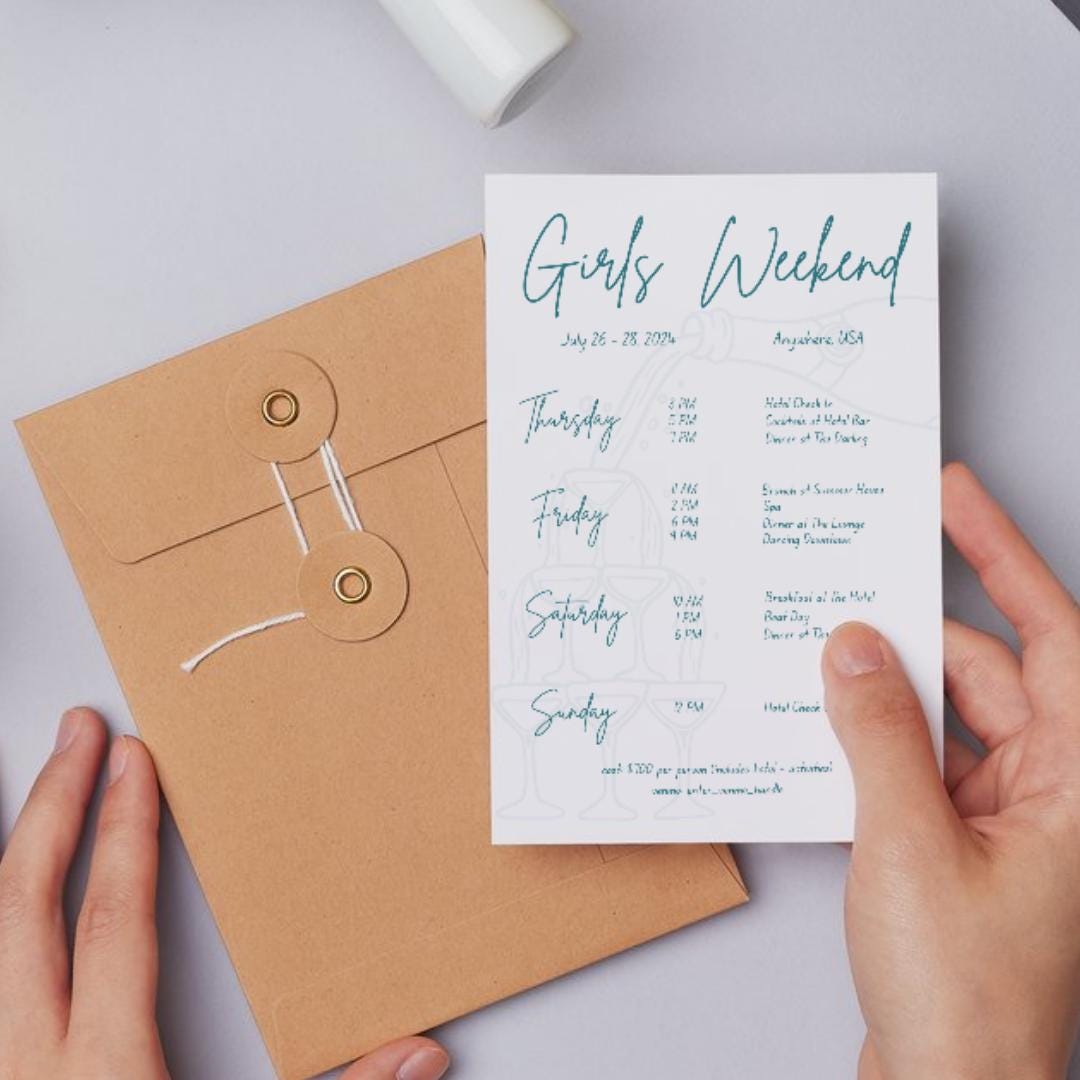 Girls Weekend
July 26 - 28, 2024 Anywhere, USA
Thursday
3 PM Hotel Check In
5 PM Cocktails at Hotel Bar
7 PM Dinner at The
Friday
11 AM Brunch at Summer
2 PM Spa
6 PM Dinner at The Lounge
9 PM Dancing Downtown
Saturday
10 AM Breakfast at the Hotel
1 PM Boat Day
6 PM Dinner at
Sunday
12 PM Hotel Check
cost: $700 per person (includes hotel + activities)
venmo: enter_venmo_handle